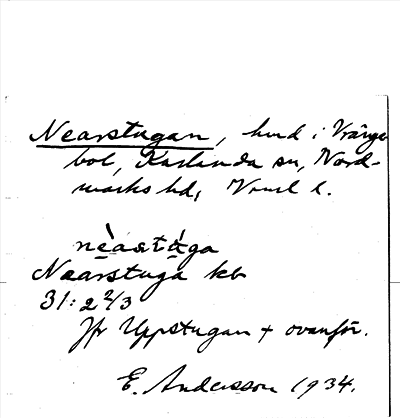 Nearstugan, hmd i Vränge
bol, Karlanda sn, Nord-
marks hd, Vrml l.
nèastúga
Nearstuga kb
31: 2 2/3
Jfr Uppstugan + ovanför.
E. Andersson 1934.